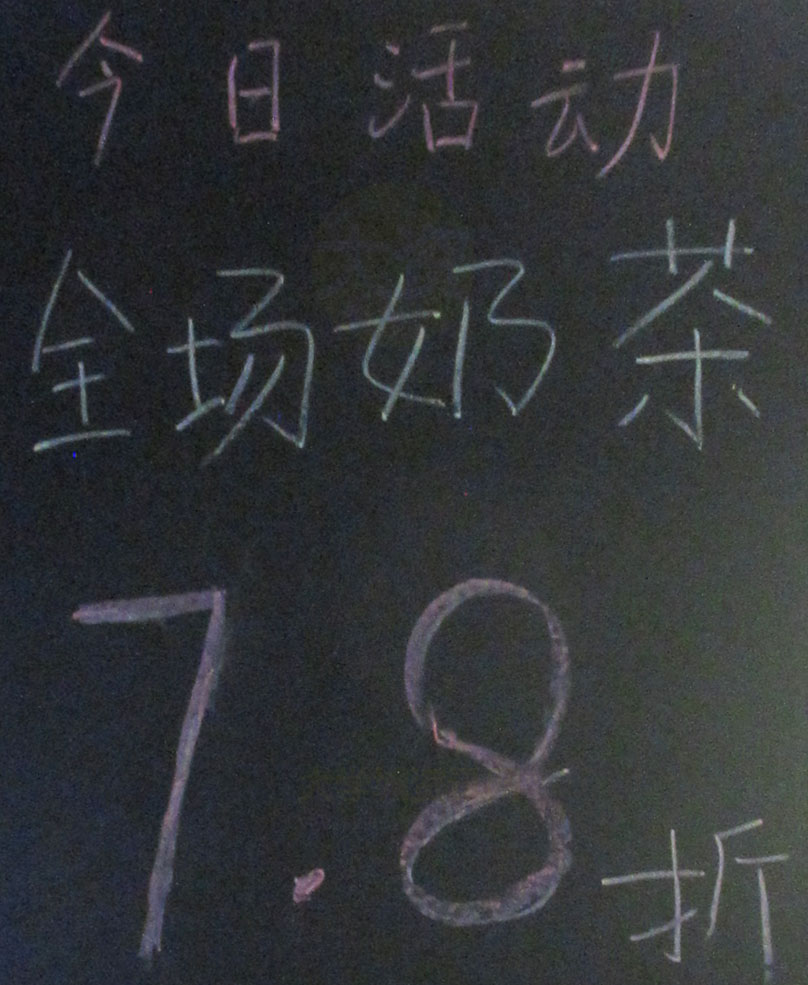 今日活动
全场奶茶
7.8折